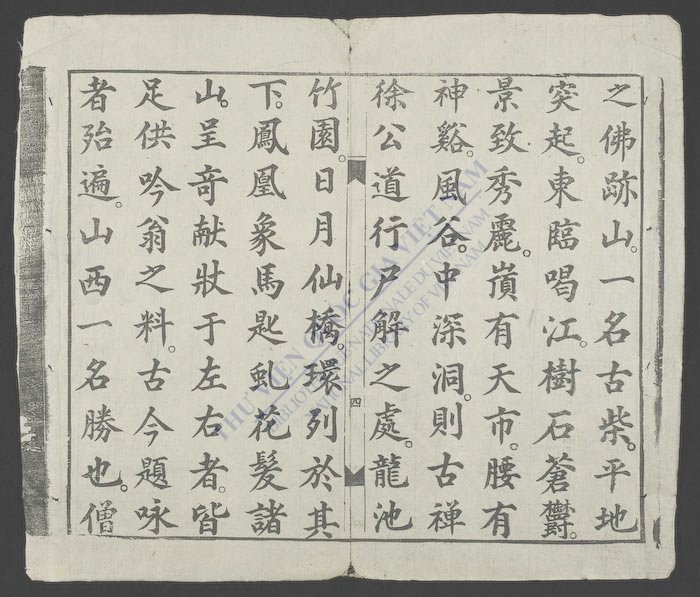 之佛跡山。一名古柴。平地
突起。東臨喝江。樹石蒼欝。
景致秀麗。嵿有天市。腰有
神谿。風谷。中深洞。則古禅
徐公道行尸解之處。龍池
四
竹園。日月仙橋。環列於其
下。鳳凰象馬匙虬花髮諸
山。呈竒献狀于左右者。皆
足供吟翁之料。古今題咏
者殆遍。山西一名勝也。僧
THƯ VIỆN QUỐC GIA VIỆT NAM
BIBLIOTHÈQUE NATIONALE DU VIETNAM
NATIONAL LIBRARY OF VIETNAM